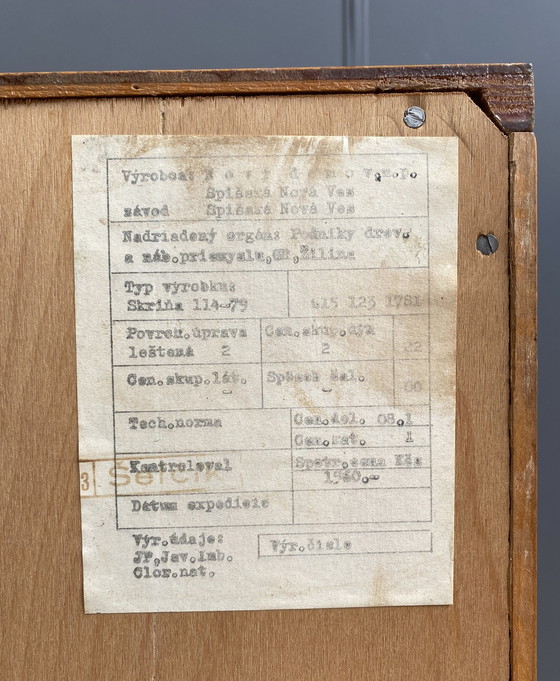 Výrobca: N o v ý d o m o v.n.p.
Spišská Nová Ves
závod Spišská Nová Ves
Nadriadený orgán: Podniky drev.
a náb.priemyslu,GR,Žilina
Typ výrobku:
Skriňa 114-79 615 123 1781
Povrch.úprava Cen.skup.dýh
leštená 2 2 22
Cen.skup.lát. Spôsob čal.
- - 00
Tech.norma Cen.del. 08.1
Cen.kat. 1
Kontroloval Spotr.cena Kčs
1960.-
3 Šefčík
Dátum expedície
Výr.údaje: Výr.číslo
JP,Jav.Lmb.
Clor.nat.